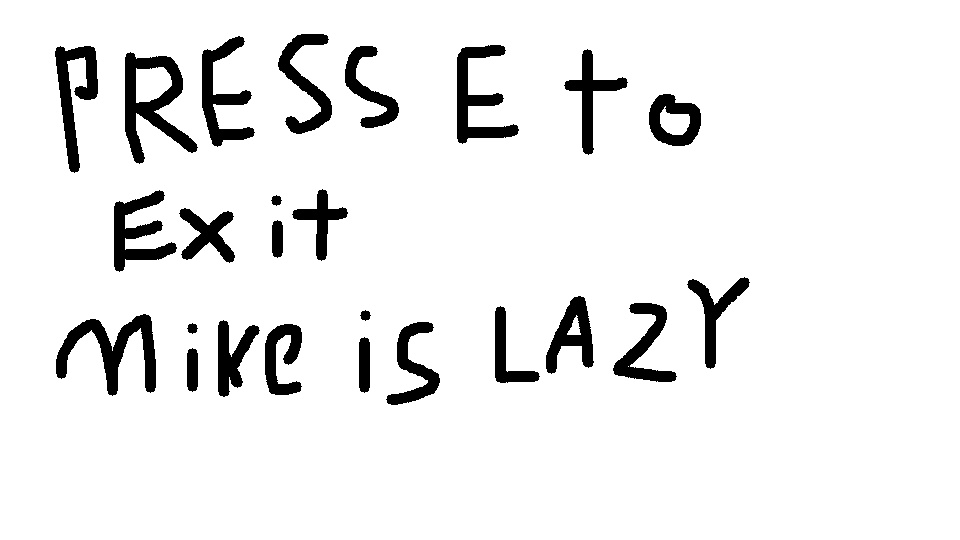 PRESS E to
Exit
Mike is LAZY